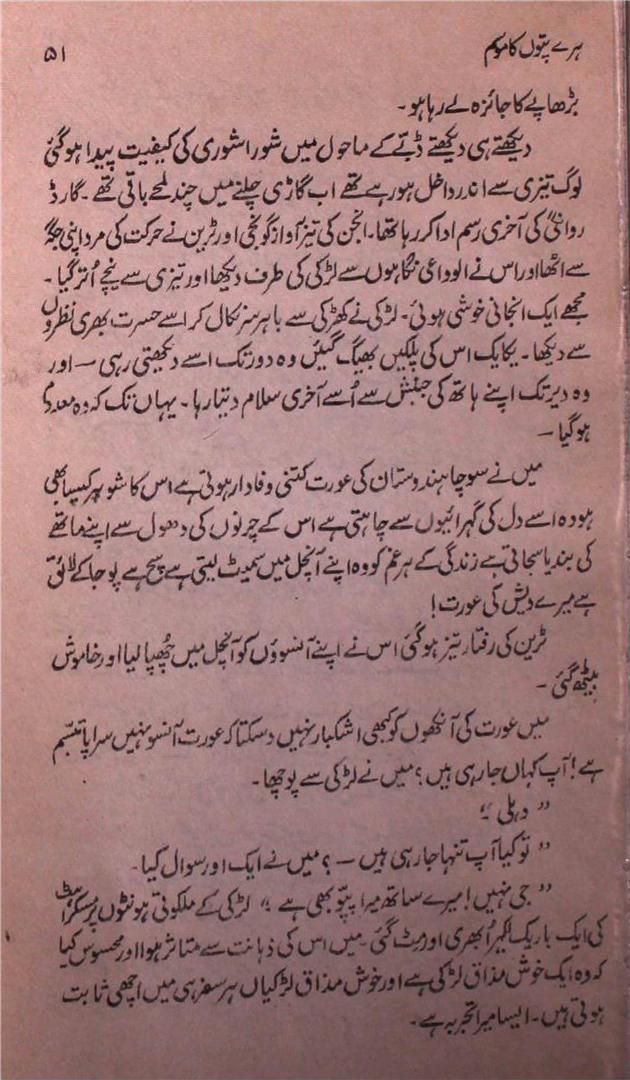 ہرے پتوں کا موسم
۵۱
بڑھاپے کا جائزہ لے رہا ہو۔
دیکھتے ہی دیکھتے ڈبّے کے ماحول میں شورا شوری کی کیفیت پیدا ہو گئی
لوگ تیزی سے اندر داخل ہو رہے تھے اب گاڑی چلنے میں چند لمحے باقی تھے۔ گارڈ
روانگی کی آخری رسم ادا کر رہا تھا۔ انجن کی تیز آواز گونجی اور ٹرین نے حرکت کی مرد اپنی جگہ
سے اٹھا اور اس نے الوداعی نگاہوں سے لڑکی کی طرف دیکھا اور تیزی سے نیچے اُتر گیا۔
مجھے ایک انجانی خوشی ہوئی۔ لڑکی نے کھڑکی سے باہر سر نکال کر اسے حسرت بھری نظروں
سے دیکھا۔ یکایک اس کی پلکیں بھیگ گئیں وہ دور تک اسے دیکھتی رہی — اور
وہ دیر تک اپنے ہاتھ کی جنبش سے اُسے آخری سلام دیتا رہا۔ یہاں تک کہ وہ معدوم
ہو گیا —
میں نے سوچا ہندوستان کی عورت کتنی وفادار ہوتی ہے اس کا شوہر کیسا بھی
ہو وہ اسے دل کی گہرائیوں سے چاہتی ہے اس کے چرنوں کی دھول سے اپنے ماتھے
کی بندیا سجاتی ہے زندگی کے ہر غم کو وہ اپنے آنچل میں سمیٹ لیتی ہے سچ ہے پوجا کے لائق
ہے میرے دیش کی عورت!
ٹرین کی رفتار تیز ہو گئی اس نے اپنے آنسوؤں کو آنچل میں چُھپا لیا اور خاموش
بیٹھ گئی —
میں عورت کی آنکھوں کو کبھی اشکبار نہیں دیکھ سکتا کہ عورت آنسو نہیں سراپا تبسّم
ہے! آپ کہاں جا رہی ہیں؟ میں نے لڑکی سے پوچھا۔
"دہلی"
"تو کیا آپ تنہا جا رہی ہیں —؟ میں نے ایک اور سوال کیا۔
"جی نہیں! میرے ساتھ میرا پپّو بھی ہے" لڑکی کے ملکوتی ہونٹوں پر مسکراہٹ
کی ایک باریک لکیر اُبھری اور مٹ گئی۔ میں اس کی ذہانت سے متاثر ہوا اور محسوس کیا
کہ وہ ایک خوش مذاق لڑکی ہے اور خوش مذاق لڑکیاں ہر سفر ہی میں اچھی ثابت
ہوتی ہیں۔ ایسا میرا تجربہ ہے۔